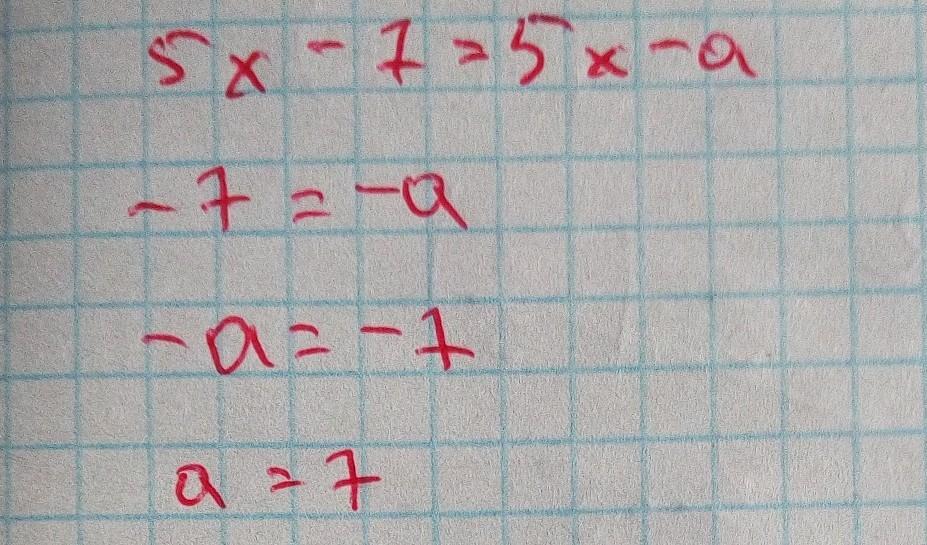 5x - 7 = 5x - a
-7 = -a
-a = -7
a = 7